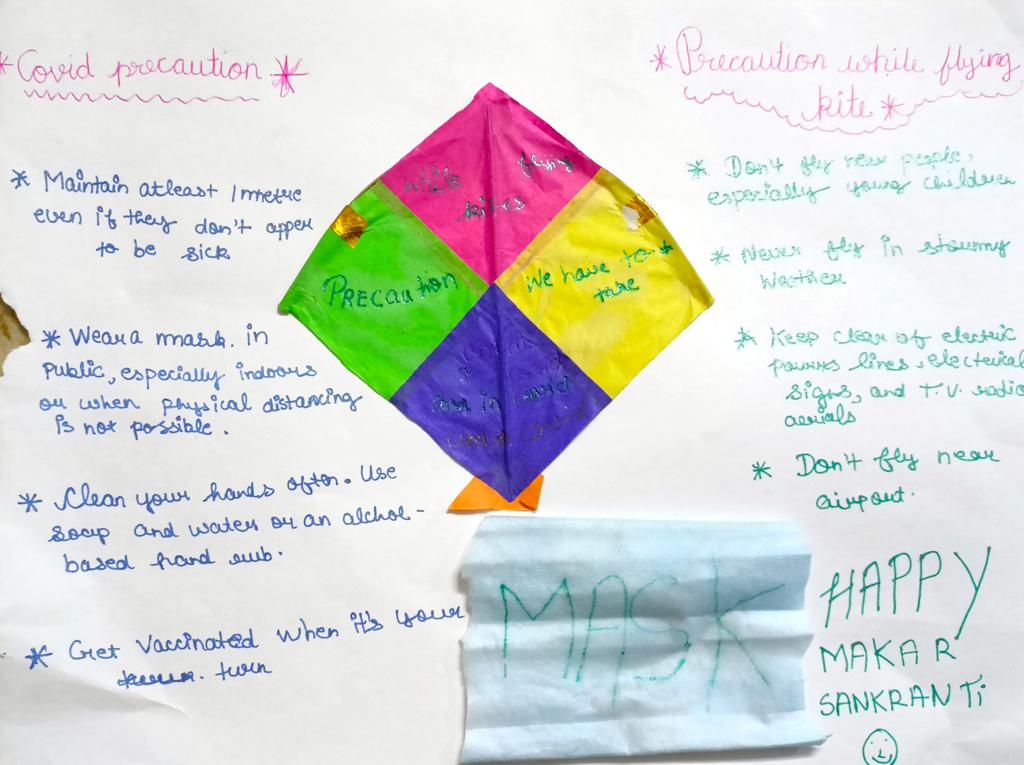 * Covid precaution *
* Maintain atleast 1 metre
even if they don't apper
to be sick
* Wear a mask. in
Public, especially indoors
or when physical distancing
is not possible.
* Clean your hands often. Use
soap and water or an alchol-
based hand rub.
* Get Vaccinated when it's your
turn
while flying
kites
PRECAUTION
We have to
take
and in covid
and in covid
MASK
* Precaution while flying
kite *
* Don't fly near people,
especially young children
* Never fly in stormy
weather
* Keep clear of electric
lines, electrical
signs, and T.V. radio
aerials
* Don't fly near
airport.
HAPPY
MAKAR
SANKRANTi